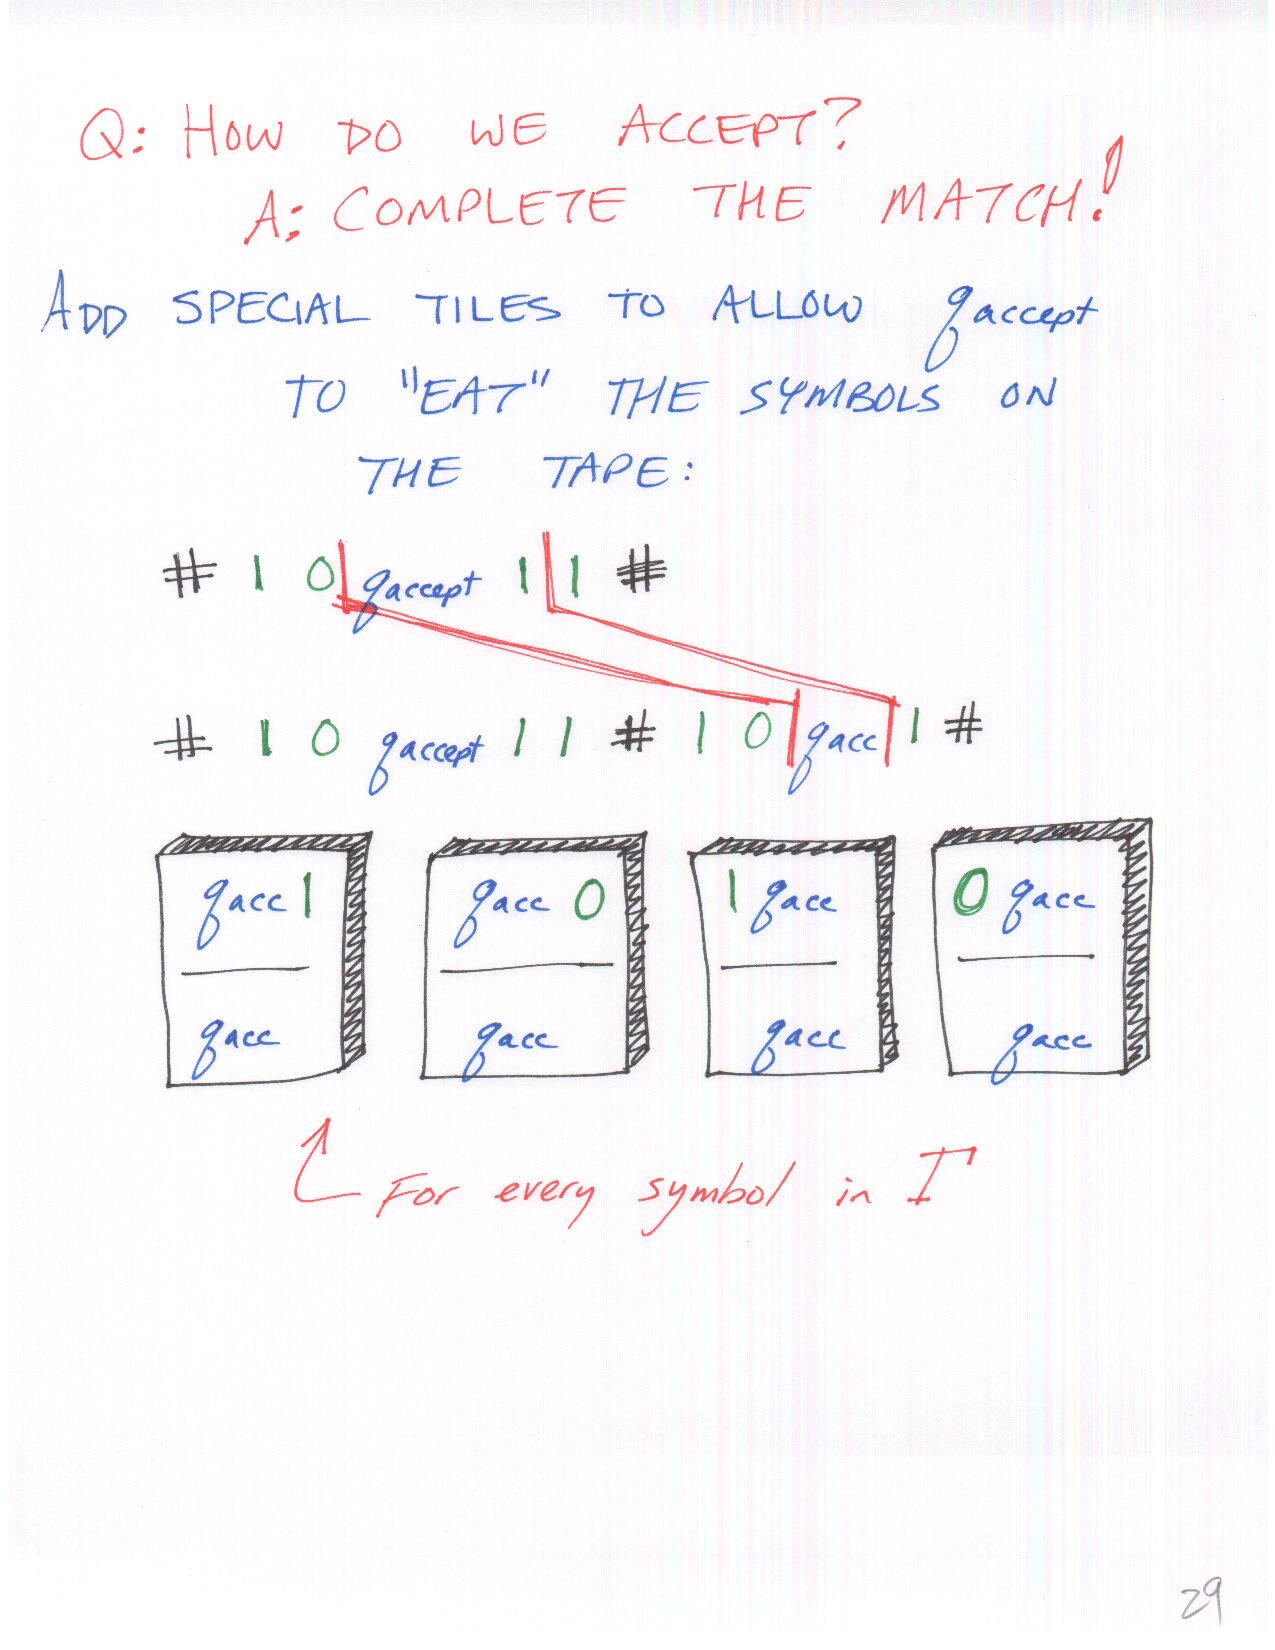 Q: HOW DO WE ACCEPT?
A: COMPLETE THE MATCH!
ADD SPECIAL TILES TO ALLOW qaccept
TO "EAT" THE SYMBOLS ON
THE TAPE:
# 1 0 qaccept 1 1 #
# 1 0 qaccept 1 1 # 1 0 qacc 1 #
qacc 1 qacc 0 1 qacc 0 qacc
qacc qacc qacc qacc
For every symbol in Γ
29